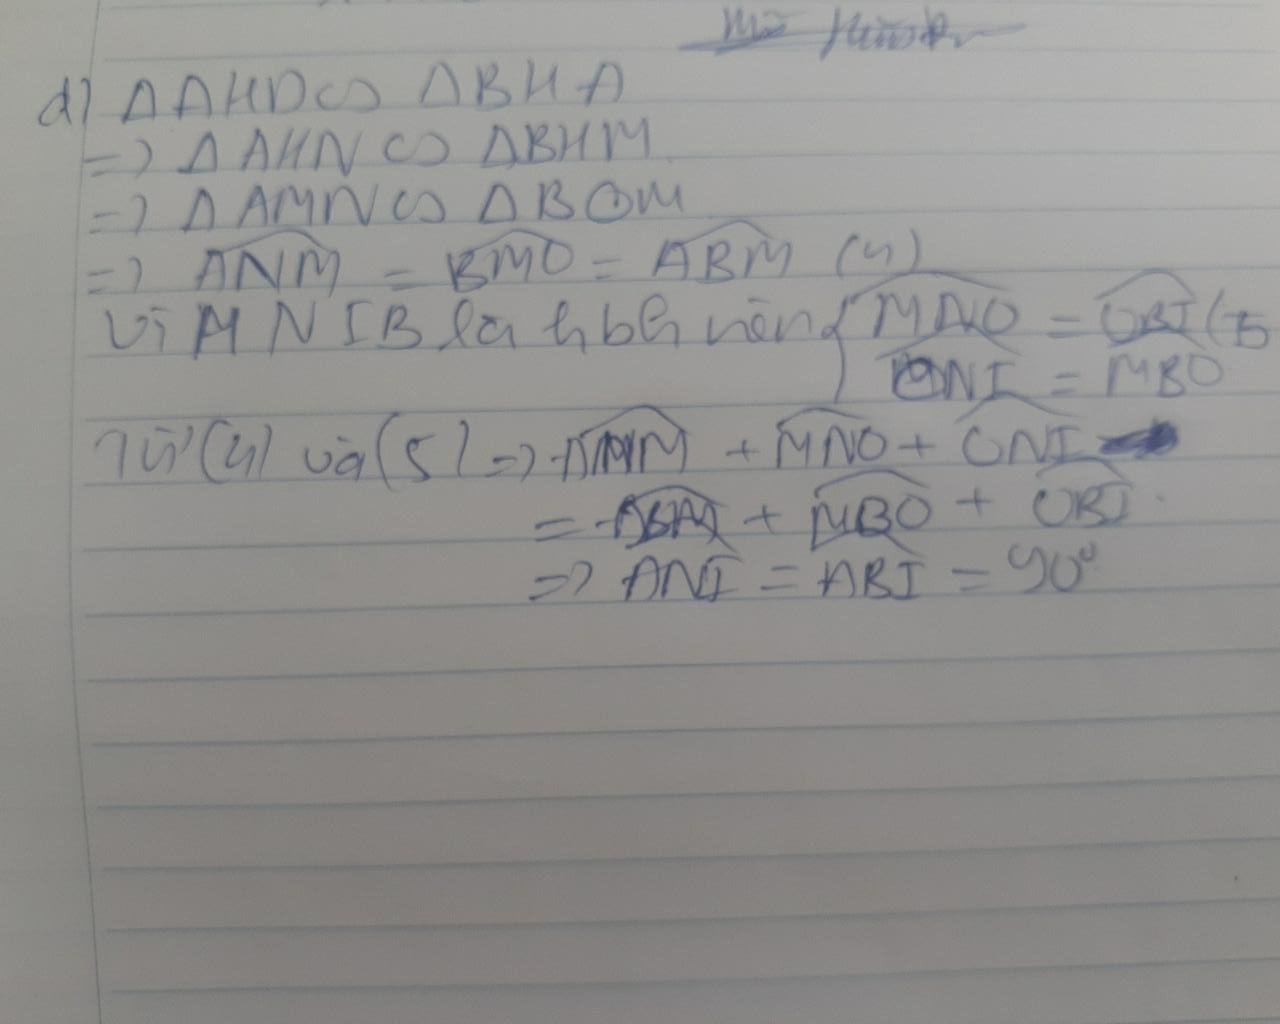 d) ΔAHD ∽ ΔBHA
=> ΔAHN ∽ ΔBHM
=> ΔAMN ∽ ΔBOM
=> ANM = BMO = ABM (4)
Vì MNIB là hbh nên { MNO = OBI (5
ONI = MBO
Từ (4) và (5) => ANM + MNO + ONI
= ABM + MBO + OBI
=> ANI = ABI = 90°